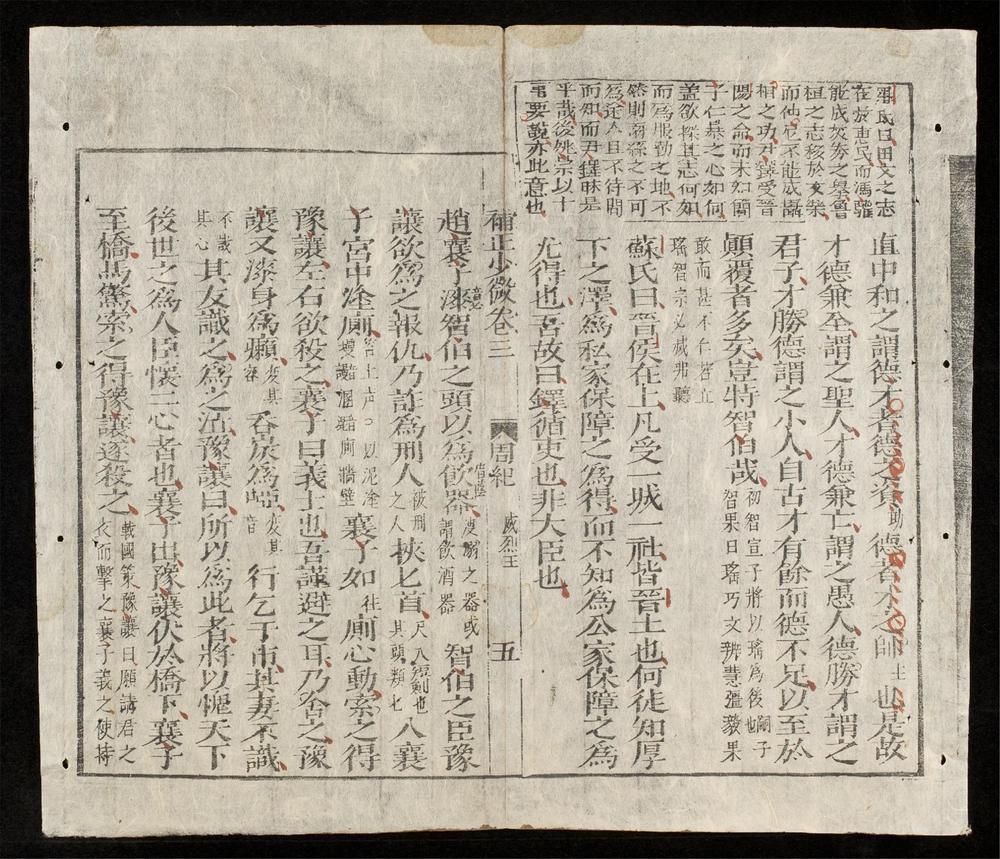 尹氏曰田文之志
在於惠民而馮驩
能成炎券之擧魯
桓之志移於女樂
而仲尼不能成攝
相之功尹鐸受晉
陽之命而未如簡
子仁暴之心如何
盖欲探其志何如
而爲服勤之地不
然則繭絲之不可
爲途人且不待問
而知而尹鐸昧是
乎哉後姚宗以十
弔要說亦此意也
直中和之謂德才者德之資助德者才之師主也是故
才德兼全謂之聖人才德兼亡謂之愚人德勝才謂之
君子才勝德謂之小人自古才有餘而德不足以至於
顚覆者多矣豈特智伯哉初智宣子將以瑤爲後嗣子也智果曰瑤巧文辨慧彊毅果
敢而甚不仁若立瑤智宗必滅弗聽
蘇氏曰晉侯在上凡受一城一社皆晉土也何徒知厚
下之澤爲私家保障之爲得而不知爲公家保障之爲
尤得也吾故曰鐸循吏也非大臣也
補正少微卷三 周紀 威烈王 五
趙襄子漆智伯之頭以爲飮器溲溺之器或謂飮酒器智伯之臣豫
讓欲爲之報仇乃詐爲刑人被刑之人挾匕首尺八短劍也其頭類匕入襄
子宮中塗廁塗上声以泥塗墁諸溷廁牆壁襄子如往廁心動索之得
豫讓左右欲殺之襄子曰義士也吾謹避之耳乃舍之豫
讓又漆身爲癩變其容呑炭爲啞變其音行乞于市其妻不識
不識其心其友識之爲之泣豫讓曰所以爲此者將以愧天下
後世之爲人臣懷二心者也襄子出豫讓伏於橋下襄子
至橋馬驚索之得豫讓遂殺之戰國策豫讓曰願請君之衣而擊之襄子義之使持